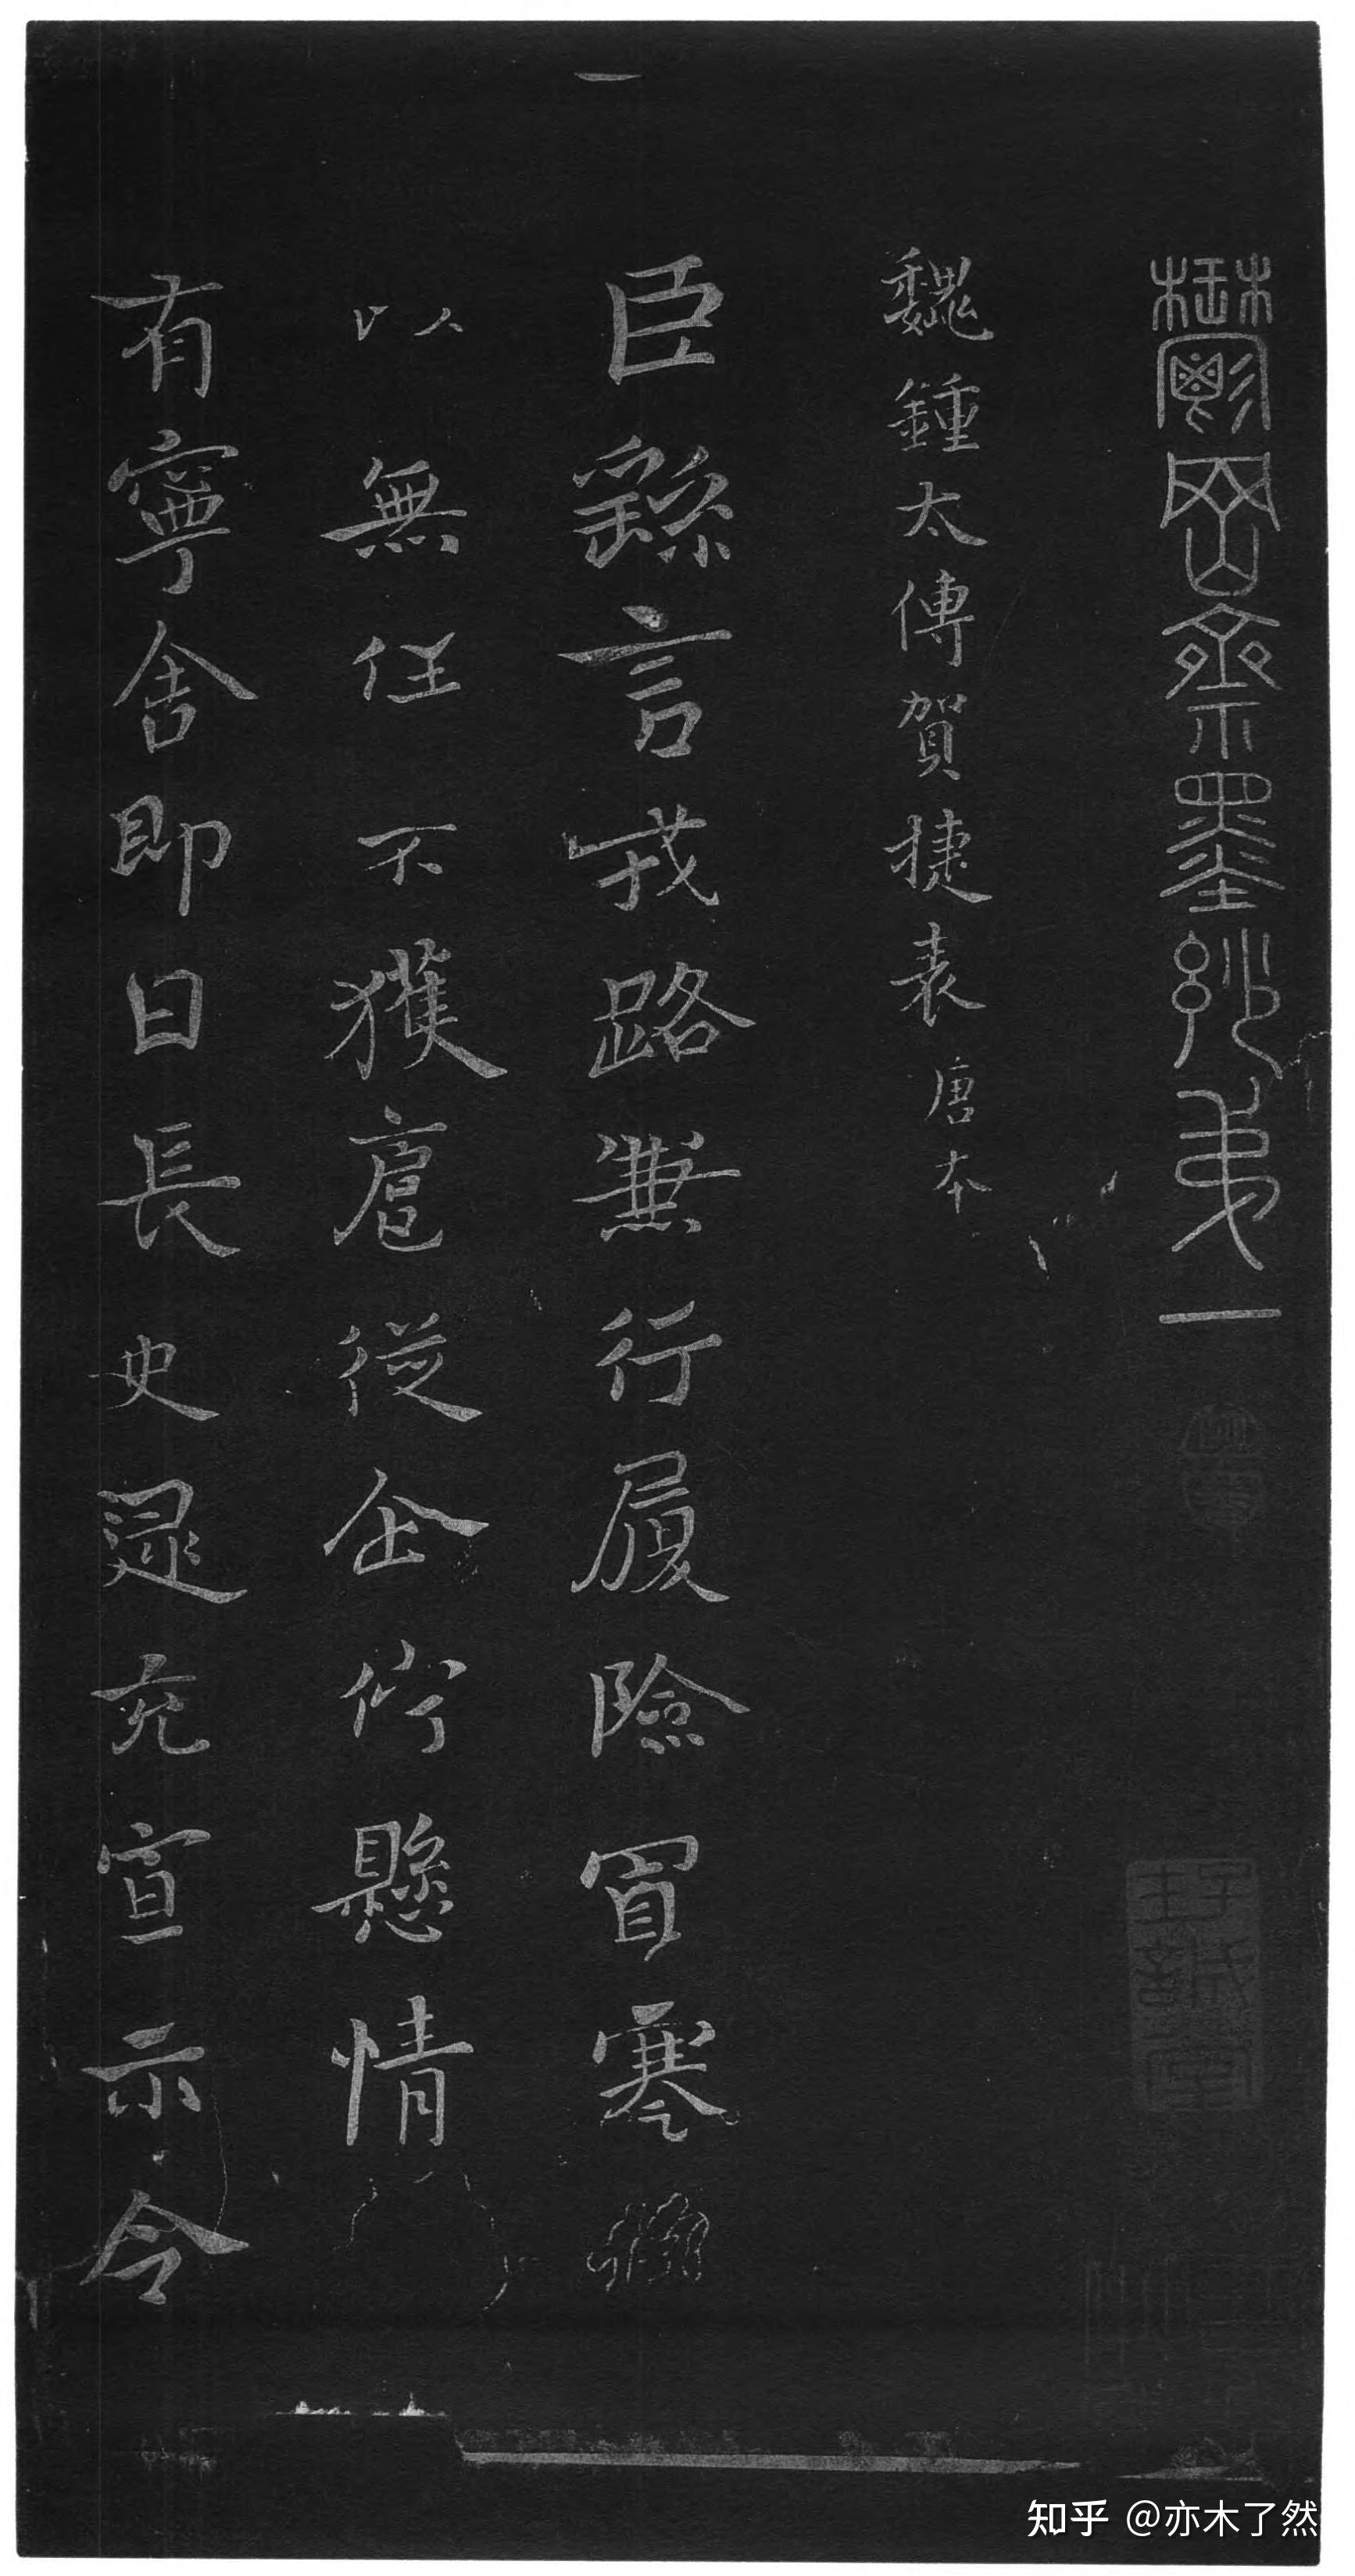 鬱岡齋墨妙第一
魏鍾太傅賀捷表 唐本
臣繇言戎路兼行履險冒寒臣
以無任不獲扈從企佇懸情
有寧舍即日長史逯充宣示令
一
知乎 @亦木了然